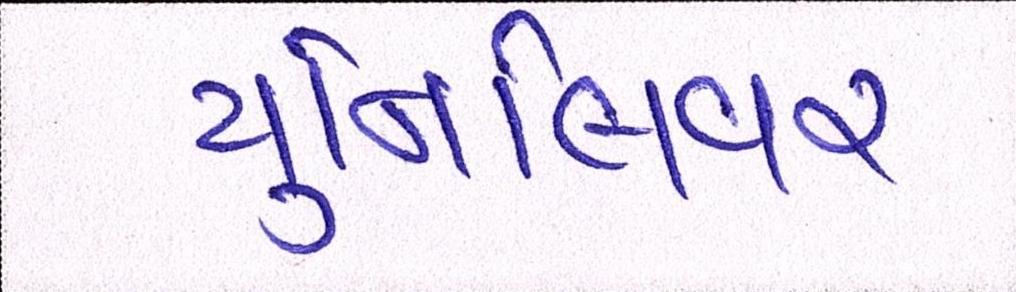 યુનિલિવર